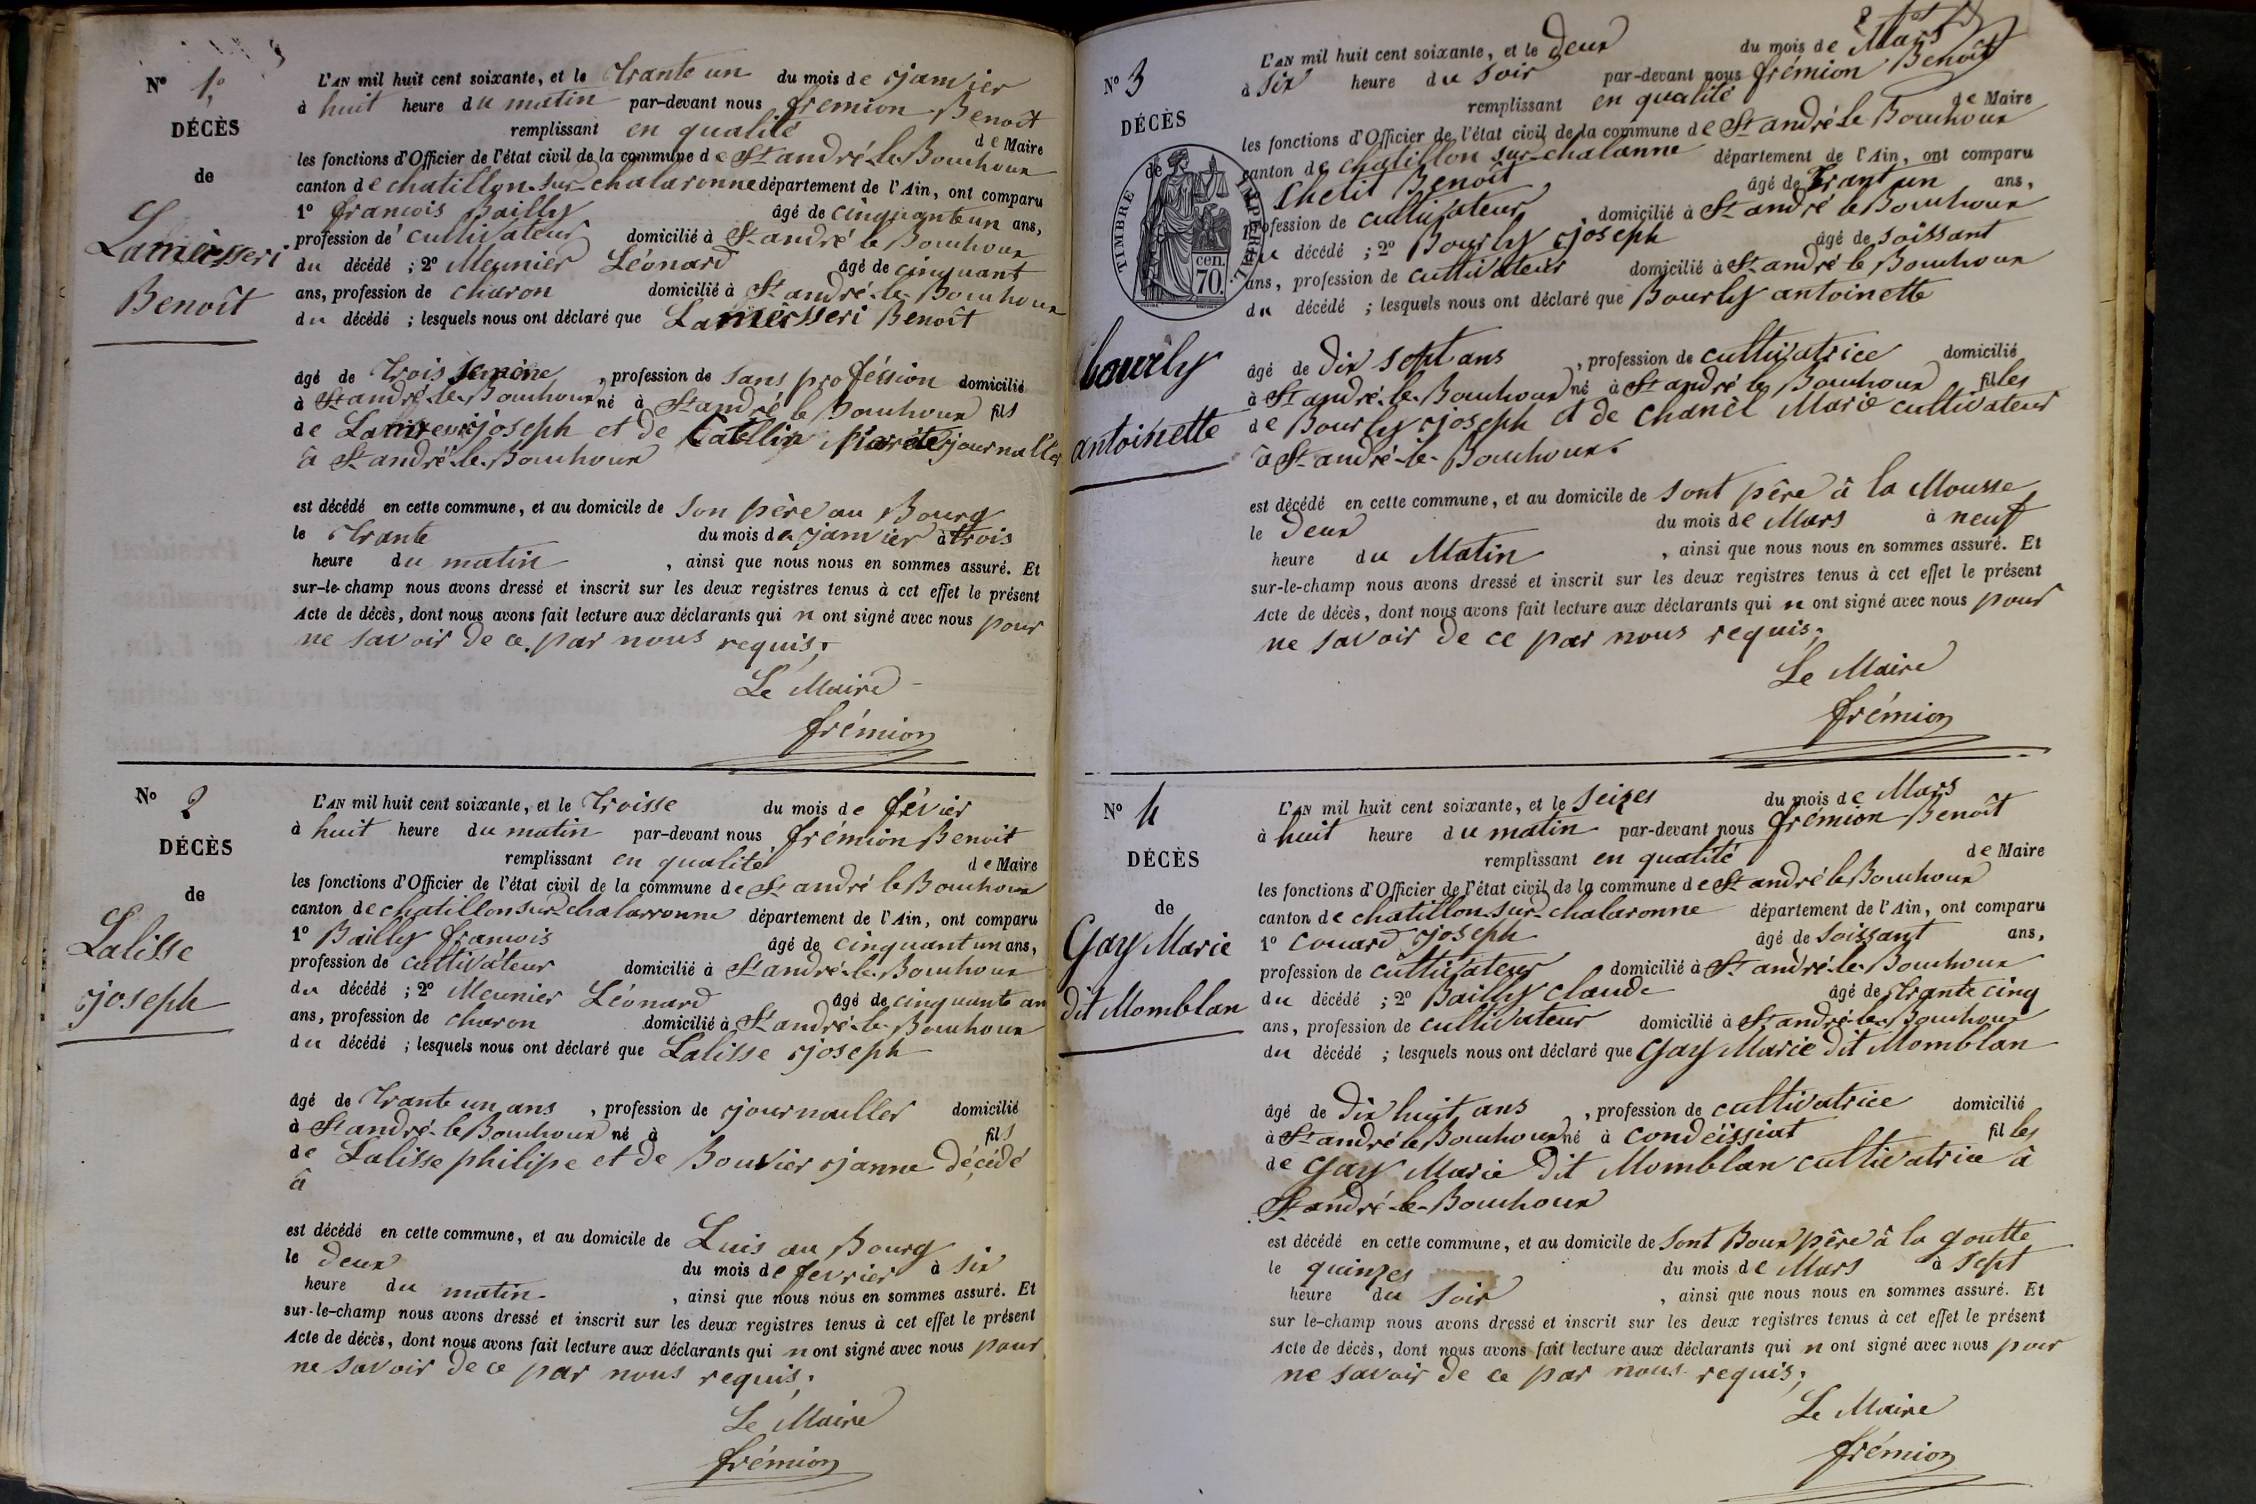 N° 1°
DÉCÈS
de
Lamiesseri
Benoît
L'AN mil huit cent soixante, et le trante un du mois de janvier
à huit heure du matin par-devant nous frémion Benoît
remplissant en qualité de Maire
les fonctions d'Officier de l'état civil de la commune de St andré le Bouchoux
canton de chatillon sur chalaronne département de l'Ain, ont comparu
1° francois Bailly âgé de cinquante un ans,
profession de cultivateur domicilié à St andré le Bouchoux
du décédé ; 2° Meunier Léonard âgé de cinquant
ans, profession de charon domicilié à St andré-le-Bouchoux
du décédé ; lesquels nous ont déclaré que Lamiesseri Benoît
âgé de trois semene , profession de sans proféssion domicilié
à St andré-le-Bouchoux né à St andré le Bouchoux fils
de joseph et de Catellin journallier
à St andré-le-Bouchoux
est décédé en cette commune, et au domicile de son père au Bourg
le trante du mois de janvier à trois
heure du matin , ainsi que nous nous en sommes assuré. Et
sur-le-champ nous avons dressé et inscrit sur les deux registres tenus à cet effet le présent
Acte de décès, dont nous avons fait lecture aux déclarants qui n ont signé avec nous pour
ne savoir de ce par nous requis;
Le Maire
frémion
N° 2
DÉCÈS
de
Lalisse
joseph
L'AN mil huit cent soixante, et le troisse du mois de févier
à huit heure du matin par-devant nous frémion Benoit
remplissant en qualité de Maire
les fonctions d'Officier de l'état civil de la commune de St andré le Bouchoux
canton de chatillon sur chalarronne département de l'Ain, ont comparu
1° Bailly francois âgé de cinquant un ans,
profession de cultivateur domicilié à St andré-le-Bouchoux
du décédé ; 2° Meunier Léonard âgé de cinquante an
ans, profession de charon domicilié à St andré-le-Bouchoux
du décédé ; lesquels nous ont déclaré que Lalisse joseph
âgé de trante un ans , profession de journaller domicilié
à St andré-le Bouchoux né à fils
de Lalisse philipe et de Bouvier janne décédé
à
est décédé en cette commune, et au domicile de Luis au Bourg
le deux du mois de fevrier à six
heure du matin , ainsi que nous nous en sommes assuré. Et
sur-le-champ nous avons dressé et inscrit sur les deux registres tenus à cet effet le présent
Acte de décès, dont nous avons fait lecture aux déclarants qui n ont signé avec nous pour
ne savoir de ce par nous requis;
Le Maire
frémion
N° 3
DÉCÈS
de
TIMBRE IMPÉRIAL
70 cen.
bourly
antoinette
L'AN mil huit cent soixante, et le deux du mois de Mars
à six heure du soir par-devant nous frémion Benoît
remplissant en qualité de Maire
les fonctions d'Officier de l'état civil de la commune de St andré le Bouchoux
canton de chatillon sur chalanne département de l'Ain, ont comparu
Chetit Benoît âgé de trant un ans,
profession de cultivateur , domicilié à St andré le Bouchoux
du décédé ; 2° Bourly joseph âgé de soissant
ans, profession de cultivateur domicilié à St andré le Bouchoux
du décédé ; lesquels nous ont déclaré que Bourly antoinette
âgé de dix sept ans , profession de cultivatrice domicilié
à St andré-le-Bouchoux né à St andré le Bouchoux filles
de Bourly joseph et de chanèl Marie cultivateur
à St andré-le-Bouchoux.
est décédé en cette commune, et au domicile de sont père à la Mousse
le deux du mois de Mars à neuf
heure du Matin , ainsi que nous nous en sommes assuré. Et
sur-le-champ nous avons dressé et inscrit sur les deux registres tenus à cet effet le présent
Acte de décès, dont nous avons fait lecture aux déclarants qui n ont signé avec nous pour
ne savoir de ce par nous requis;
Le Maire
frémion
N° 4
DÉCÈS
de
Gay Marie
dit Momblan
L'AN mil huit cent soixante, et le seizes du mois de Mars
à huit heure du matin par-devant nous frémion Benoît
remplissant en qualité de Maire
les fonctions d'Officier de l'état civil de la commune de St andré le Bouchoux
canton de chatillon sur chalaronne département de l'Ain, ont comparu
1° Couard joseph âgé de soissant ans,
profession de cultivateur domicilié à St andré-le-Bouchoux
du décédé ; 2° Bailly claude âgé de trante cinq
ans, profession de cultivateur domicilié à St andré-le-Bouchoux
du décédé ; lesquels nous ont déclaré que Gay Marie dit Momblan
âgé de dix huit ans , profession de cultivatrice domicilié
à St andré le Bouchoux né à condéissiat filles
de Gay Marie dit Momblan cultivatrice à
St andré-le-Bouchoux
est décédé en cette commune, et au domicile de sont Boux père à la goutte
le quinzes du mois de Mars à sept
heure du soir , ainsi que nous nous en sommes assuré. Et
sur le-champ nous avons dressé et inscrit sur les deux registres tenus à cet effet le présent
Acte de décès, dont nous avons fait lecture aux déclarants qui n ont signé avec nous pour
ne savoir de ce par nous requis;
Le Maire
frémion